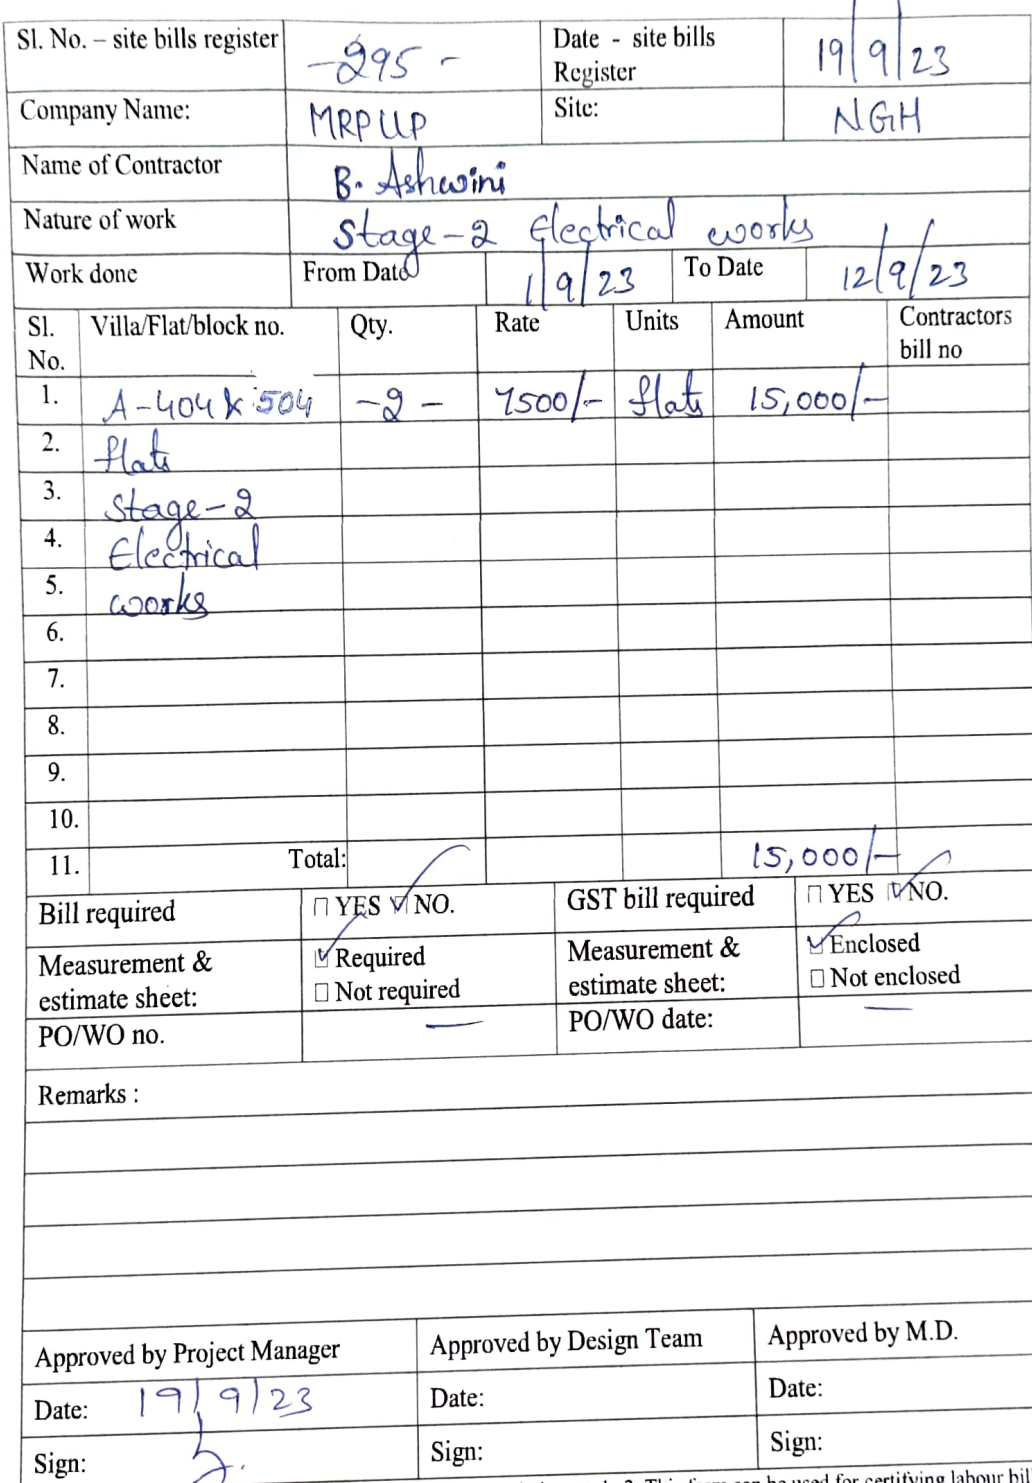 Sl. No. – site bills register -295- Date - site bills Register 19/9/23
Company Name: MRPUP Site: NGH
Name of Contractor B. Ashwini
Nature of work Stage-2 Electrical works
Work done From Date 1/9/23 To Date 12/9/23
Sl. No. Villa/Flat/block no. Qty. Rate Units Amount Contractors bill no
1. A-404 & 504 -2- 7500/- flats 15,000/-
2. flats
3. Stage-2
4. Electrical
5. works
6.
7.
8.
9.
10.
11. Total: 15,000/-
Bill required YES NO. GST bill required YES NO.
Measurement & estimate sheet: Required Not required Measurement & estimate sheet: Enclosed Not enclosed
PO/WO no. — PO/WO date: —
Remarks :
Approved by Project Manager Approved by Design Team Approved by M.D.
Date: 19/9/23 Date: Date:
Sign: Sign: Sign:
This form can be used for certifying labour bil